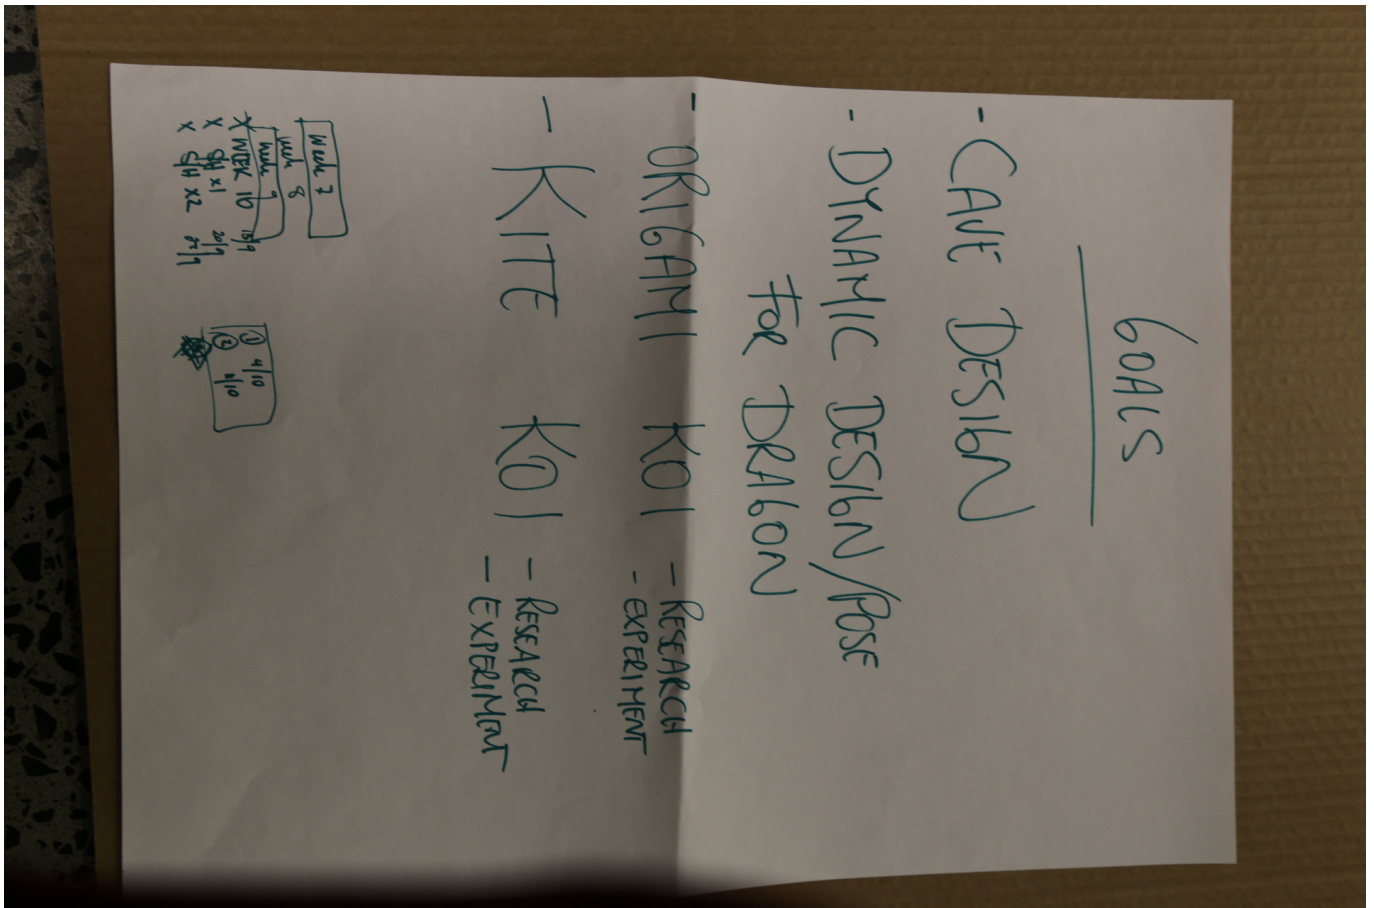 GOALS
- CAVE DESIGN
- DYNAMIC DESIGN/POSE
FOR DRAGON
- ORIGAMI KOI - RESEARCH
- EXPERIMENT
- KITE KOI - RESEARCH
- EXPERIMENT
Week 7
week 8
week 9
X WEEK 10 18/9
X S/H x1 20/9
X S/H x2
① 4/10
② 11/10